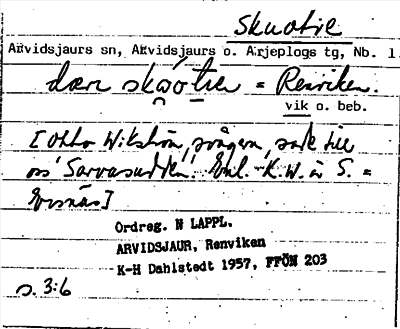 Skuotie
Arvidsjaurs sn, Arvidsjaurs o. Arjeplogs tg, Nb. l
dær skåotie = Renviken.
vik o. beb.
[Otto Wikström, frågern, sade till
oss "Sarvasudden". Enl. K.W. är S. =
Ersnäs]
Ordreg. N LAPPL.
ARVIDSJAUR, Renviken
K-H Dahlstedt 1957, FFÖN 203
s. 3:6